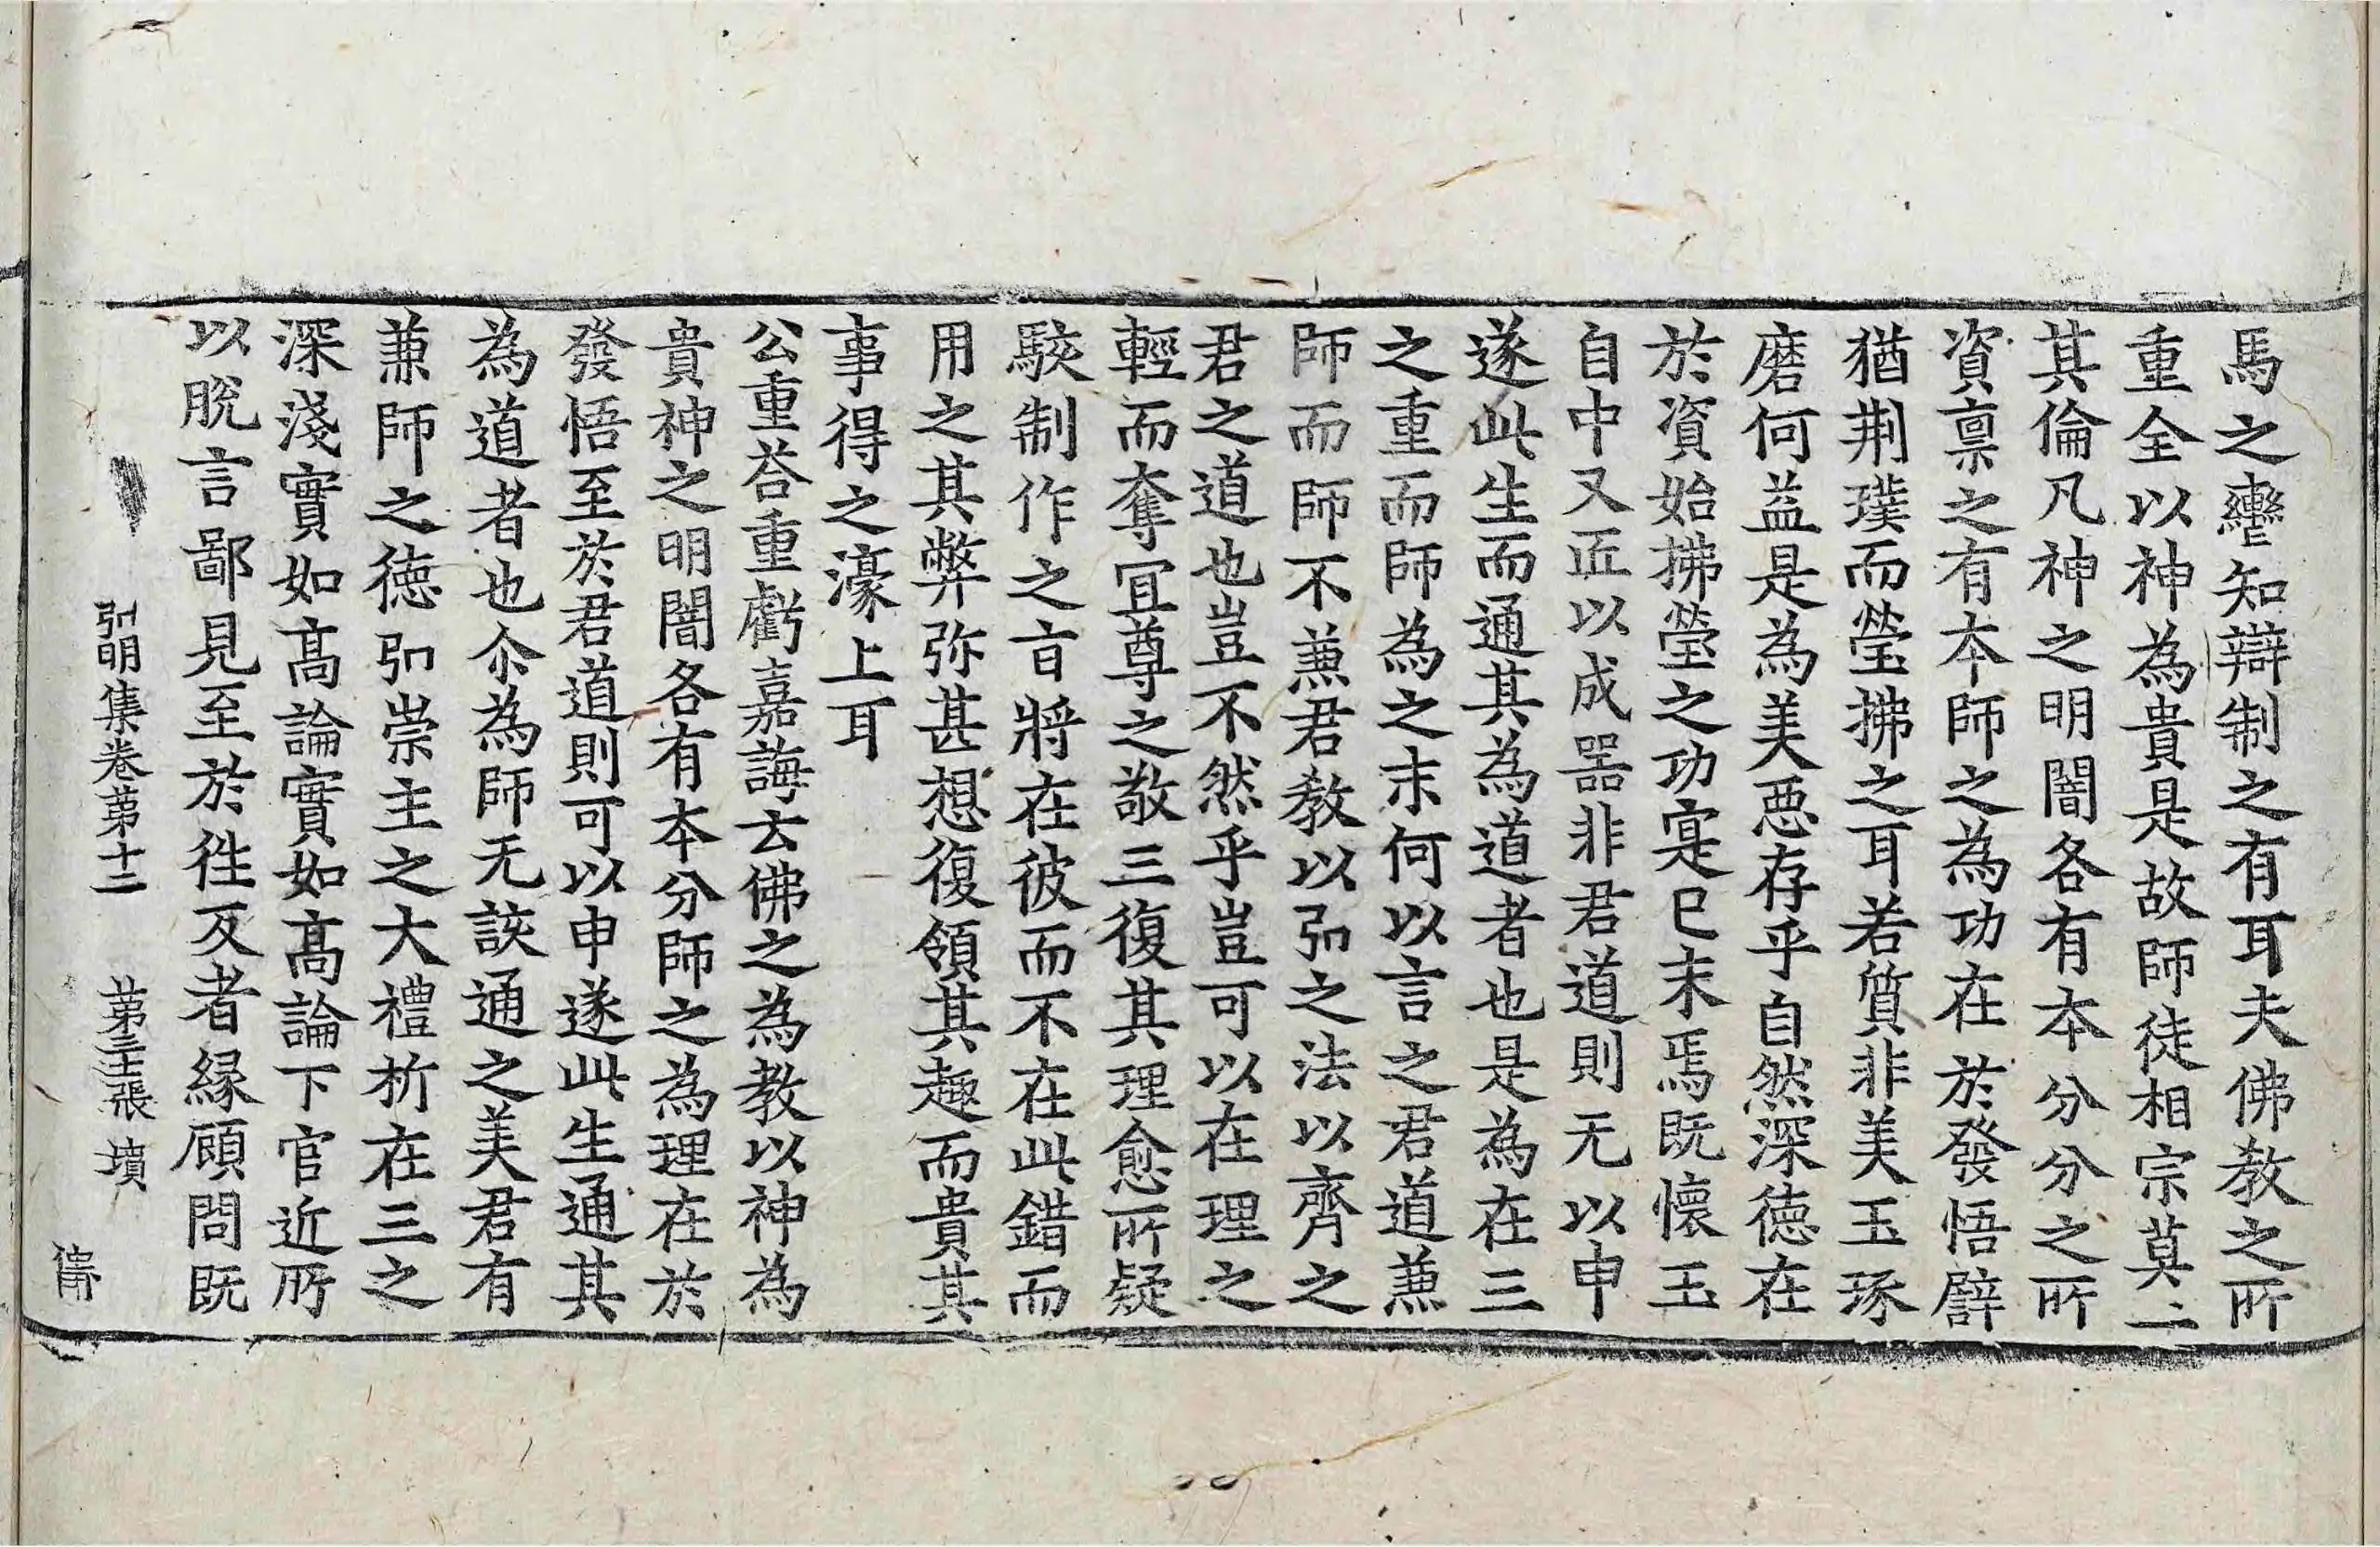 馬之轡知辯制之有耳夫佛教之所
重全以神為貴是故師徒相宗莫二
其倫凡神之明闇各有本分分之所
資稟之有本師之為功在於發悟譬
猶荆璞而瑩拂之耳若質非美玉琢
磨何益是為美惡存乎自然深德在
於資始拂瑩之功寔已末焉既懷玉
自中又匠以成器非君道則无以申
遂此生而通其為道者也是為在三
之重而師為之末何以言之君道兼
師而師不兼君教以弘之法以齊之
君之道也豈不然乎豈可以在理之
輕而奪冝尊之敬三復其理愈所疑
駭制作之旨將在彼而不在此錯而
用之其弊弥甚想復領其趣而貴其
事得之濠上耳
公重荅重虧嘉誨云佛之為教以神為
貴神之明闇各有本分師之為理在於
發悟至於君道則可以申遂此生通其
為道者也尒為師无該通之美君有
兼師之德弘崇主之大禮折在三之
深淺實如高論實如高論下官近所
以脫言鄙見至於徃反者緣顧問既
弘明集卷苐十二　苐三十張　墳